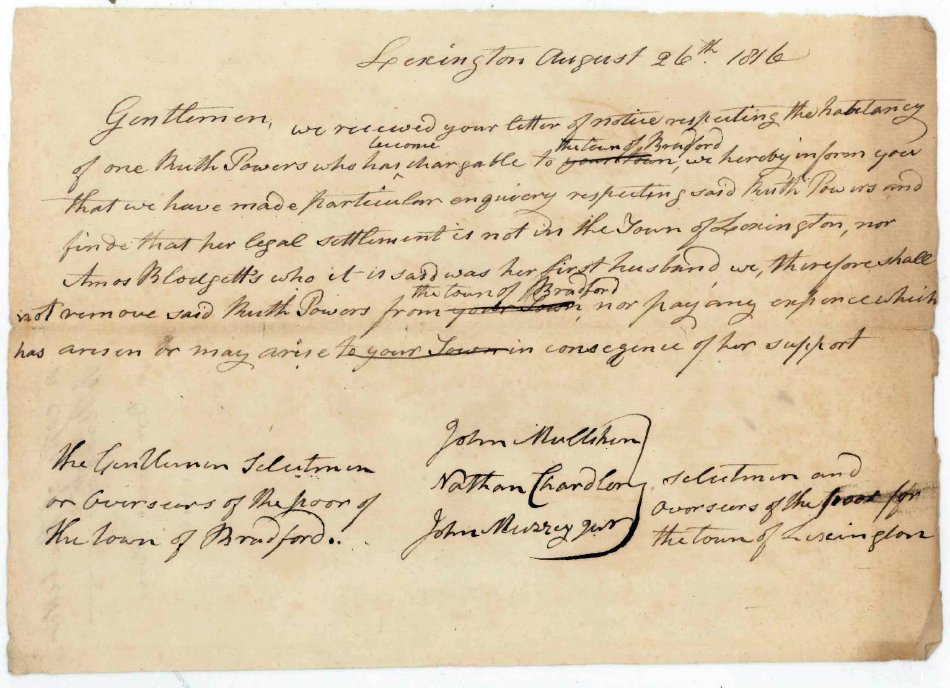 Lexington August 26th. 1816
Gentlemen, we received your letter of notice respecting the habitancy
become the town of Bradford
of one Ruth Powers who has chargable to your town, we hereby inform you
that we have made particular enquiery respecting said Ruth Powers and
finde that her legal settlement is not in the Town of Lexington, nor
Amos Blodgett's who it is said was her first husband we, therefore shall
the town of Bradford
not remove said Ruth Powers from your Town, nor pay any expence which
has arisen or may arise to your Town in conseqence of her support
John Mulliken
Nathan Chandler
John Muzzey jur
the Gentlemen Selectmen
or Overseers of the poor of
the town of Bradford..
selectmen and
Overseers of the poor for
the town of Lexington